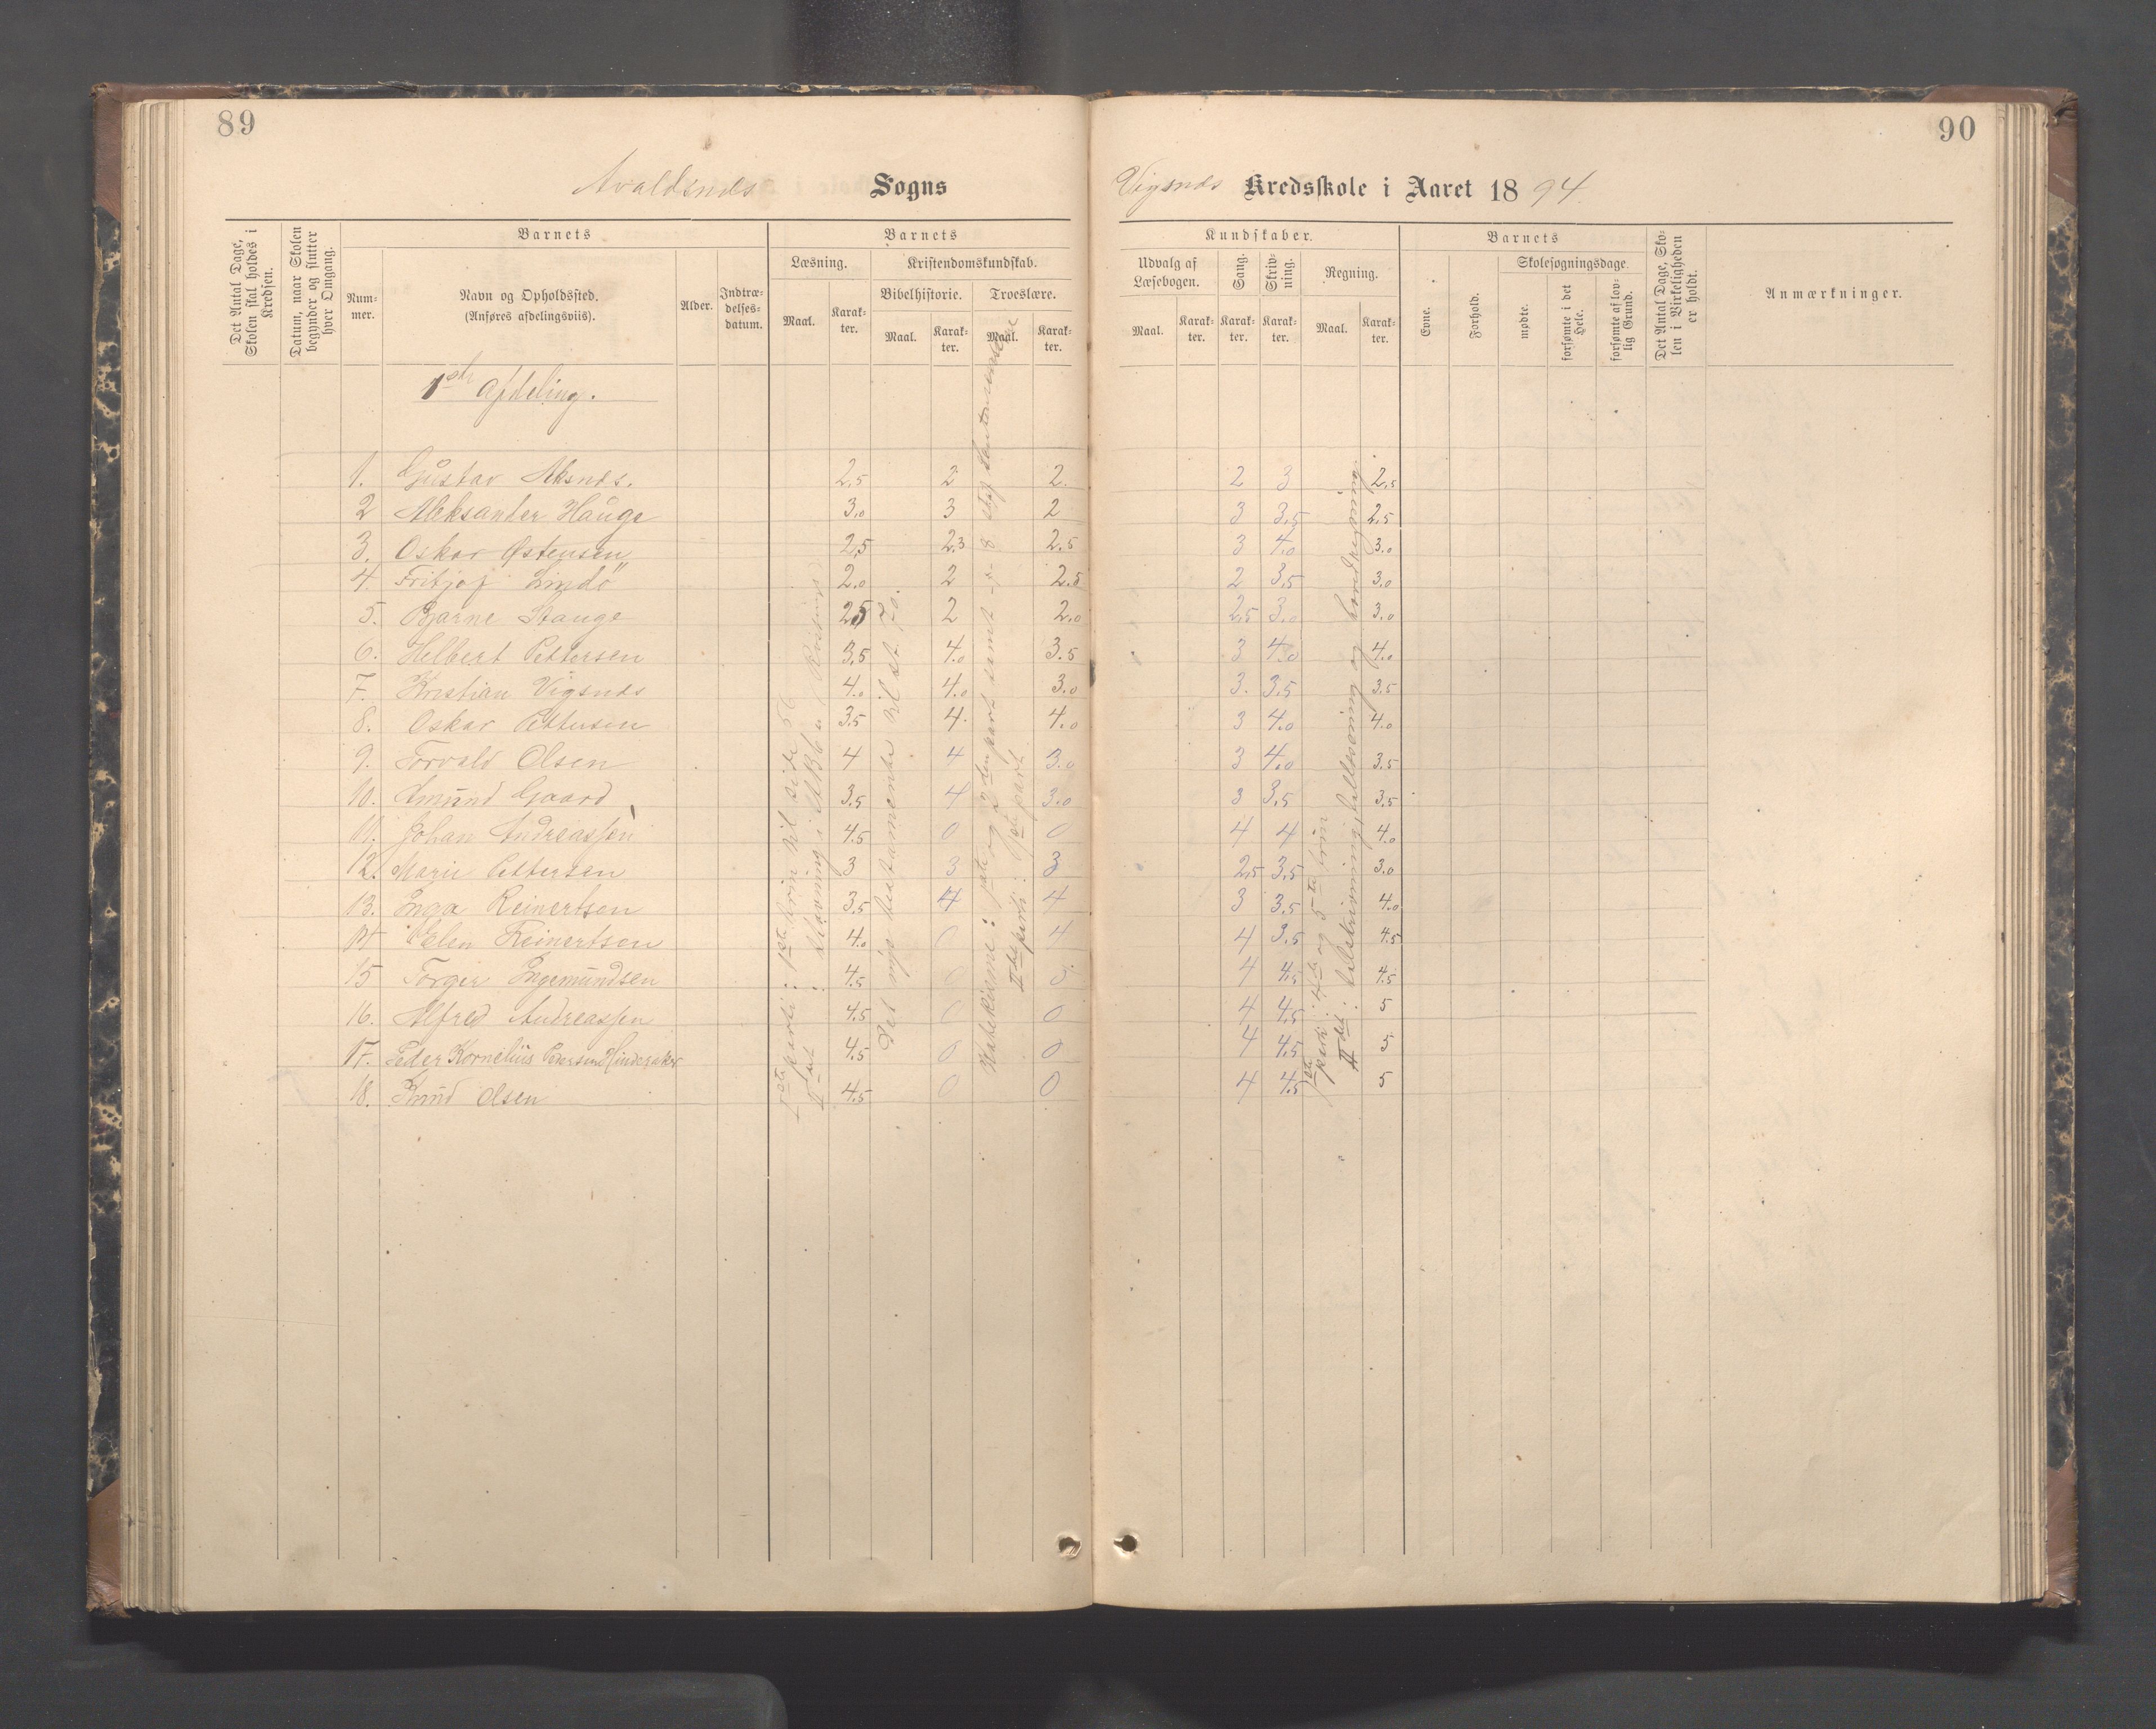 89
90
Avaldsnæs Sogns Vigsnæs Kredsskole i Aaret 1894.
Det Antal Dage, Skolen skal holdes i Kredsen.
Datum, naar Skolen begynder og slutter hver Omgang.
Barnets
Nummer.
Navn og Opholdssted. (Anføres afdelingsviis).
Alder.
Indtrædelses-datum.
Barnets
Læsning.
Maal.
Karakter.
Kristendomskundskab.
Bibelhistorie.
Maal.
Karakter.
Troeslære.
Maal.
Karakter.
Kundskaber.
Udvalg af Læsebogen.
Maal.
Karakter.
Sang.
Karakter.
Skrivning.
Karakter.
Regning.
Maal.
Karakter.
Barnets
Evne.
Forhold.
Skolesøgningsdage.
mødte.
forsømte i det Hele.
forsømte af lovlig Grund.
Det Antal Dage, Skolen i Virkeligheden er holdt.
Anmærkninger.
1ste Afdeling.
1. Gustav Aksnæs. 2,5 2 2. 2 3 2,5
2 Aleksander Hauge 3,0 3 2 3 3,5 2,5
3. Oskar Østensen 2,5 2,3 2.5 3 4,0 3.0
4. Fritjof Lindö 2,0 2 2.5 2 3,5 3.0
5. Bjarne Stange 2,5 2 2,0 2,5 3,0 3,0
6. Helbert Pettersen 3,5 4.0 3.5 3 4,0 4,0
7. Kristian Vigsnæs 4.0 4.0 3.0 3. 3,5 3.5
8. Oskar Pettersen 3.5 4. 4.0 3 4.0 4.0
9. Torvald Olsen 4 4 3.0 3 4.0 3.5
10. Amund Gaard 3.5 4 3.0 3 3,5 3,5
11. Johan Andreassen 4.5 0 0 4 4 4.0
12. Marie Pettersen 3 3 3 2,5 3,5 3.0
13. Inga Reinertsen 3.5 4 4 3 3,5 4.0
14 Elen Reinertsen 4.0 0 4 4 3,5 4.5
15 Torger Ingemundsen 4.5 0 0. 4 4,5 4.5
16. Alfred Andreassen 4.5 0 0 4 4,5 5
17. Peder Kornelius Pedersen Hinderaker 4.5 0 0 4 4,5 5
18. Knud Olsen 4.5 0 0 4 4.5 5
1ste parti: 1ste trin til side 56
IIdet : Stavning i
Det nye testamente til st. 70.
Katekisme: 1ste og 2den part samt
IIdet parti: 1ste part
1ste park: 4de og 5te trin
IIdet : talskrivning, tallæsning og hovedregning.